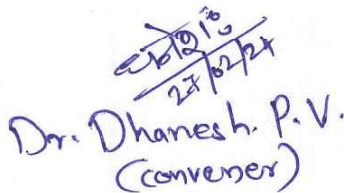 27/02/24
Dr. Dhanesh. P. V.
(convener)